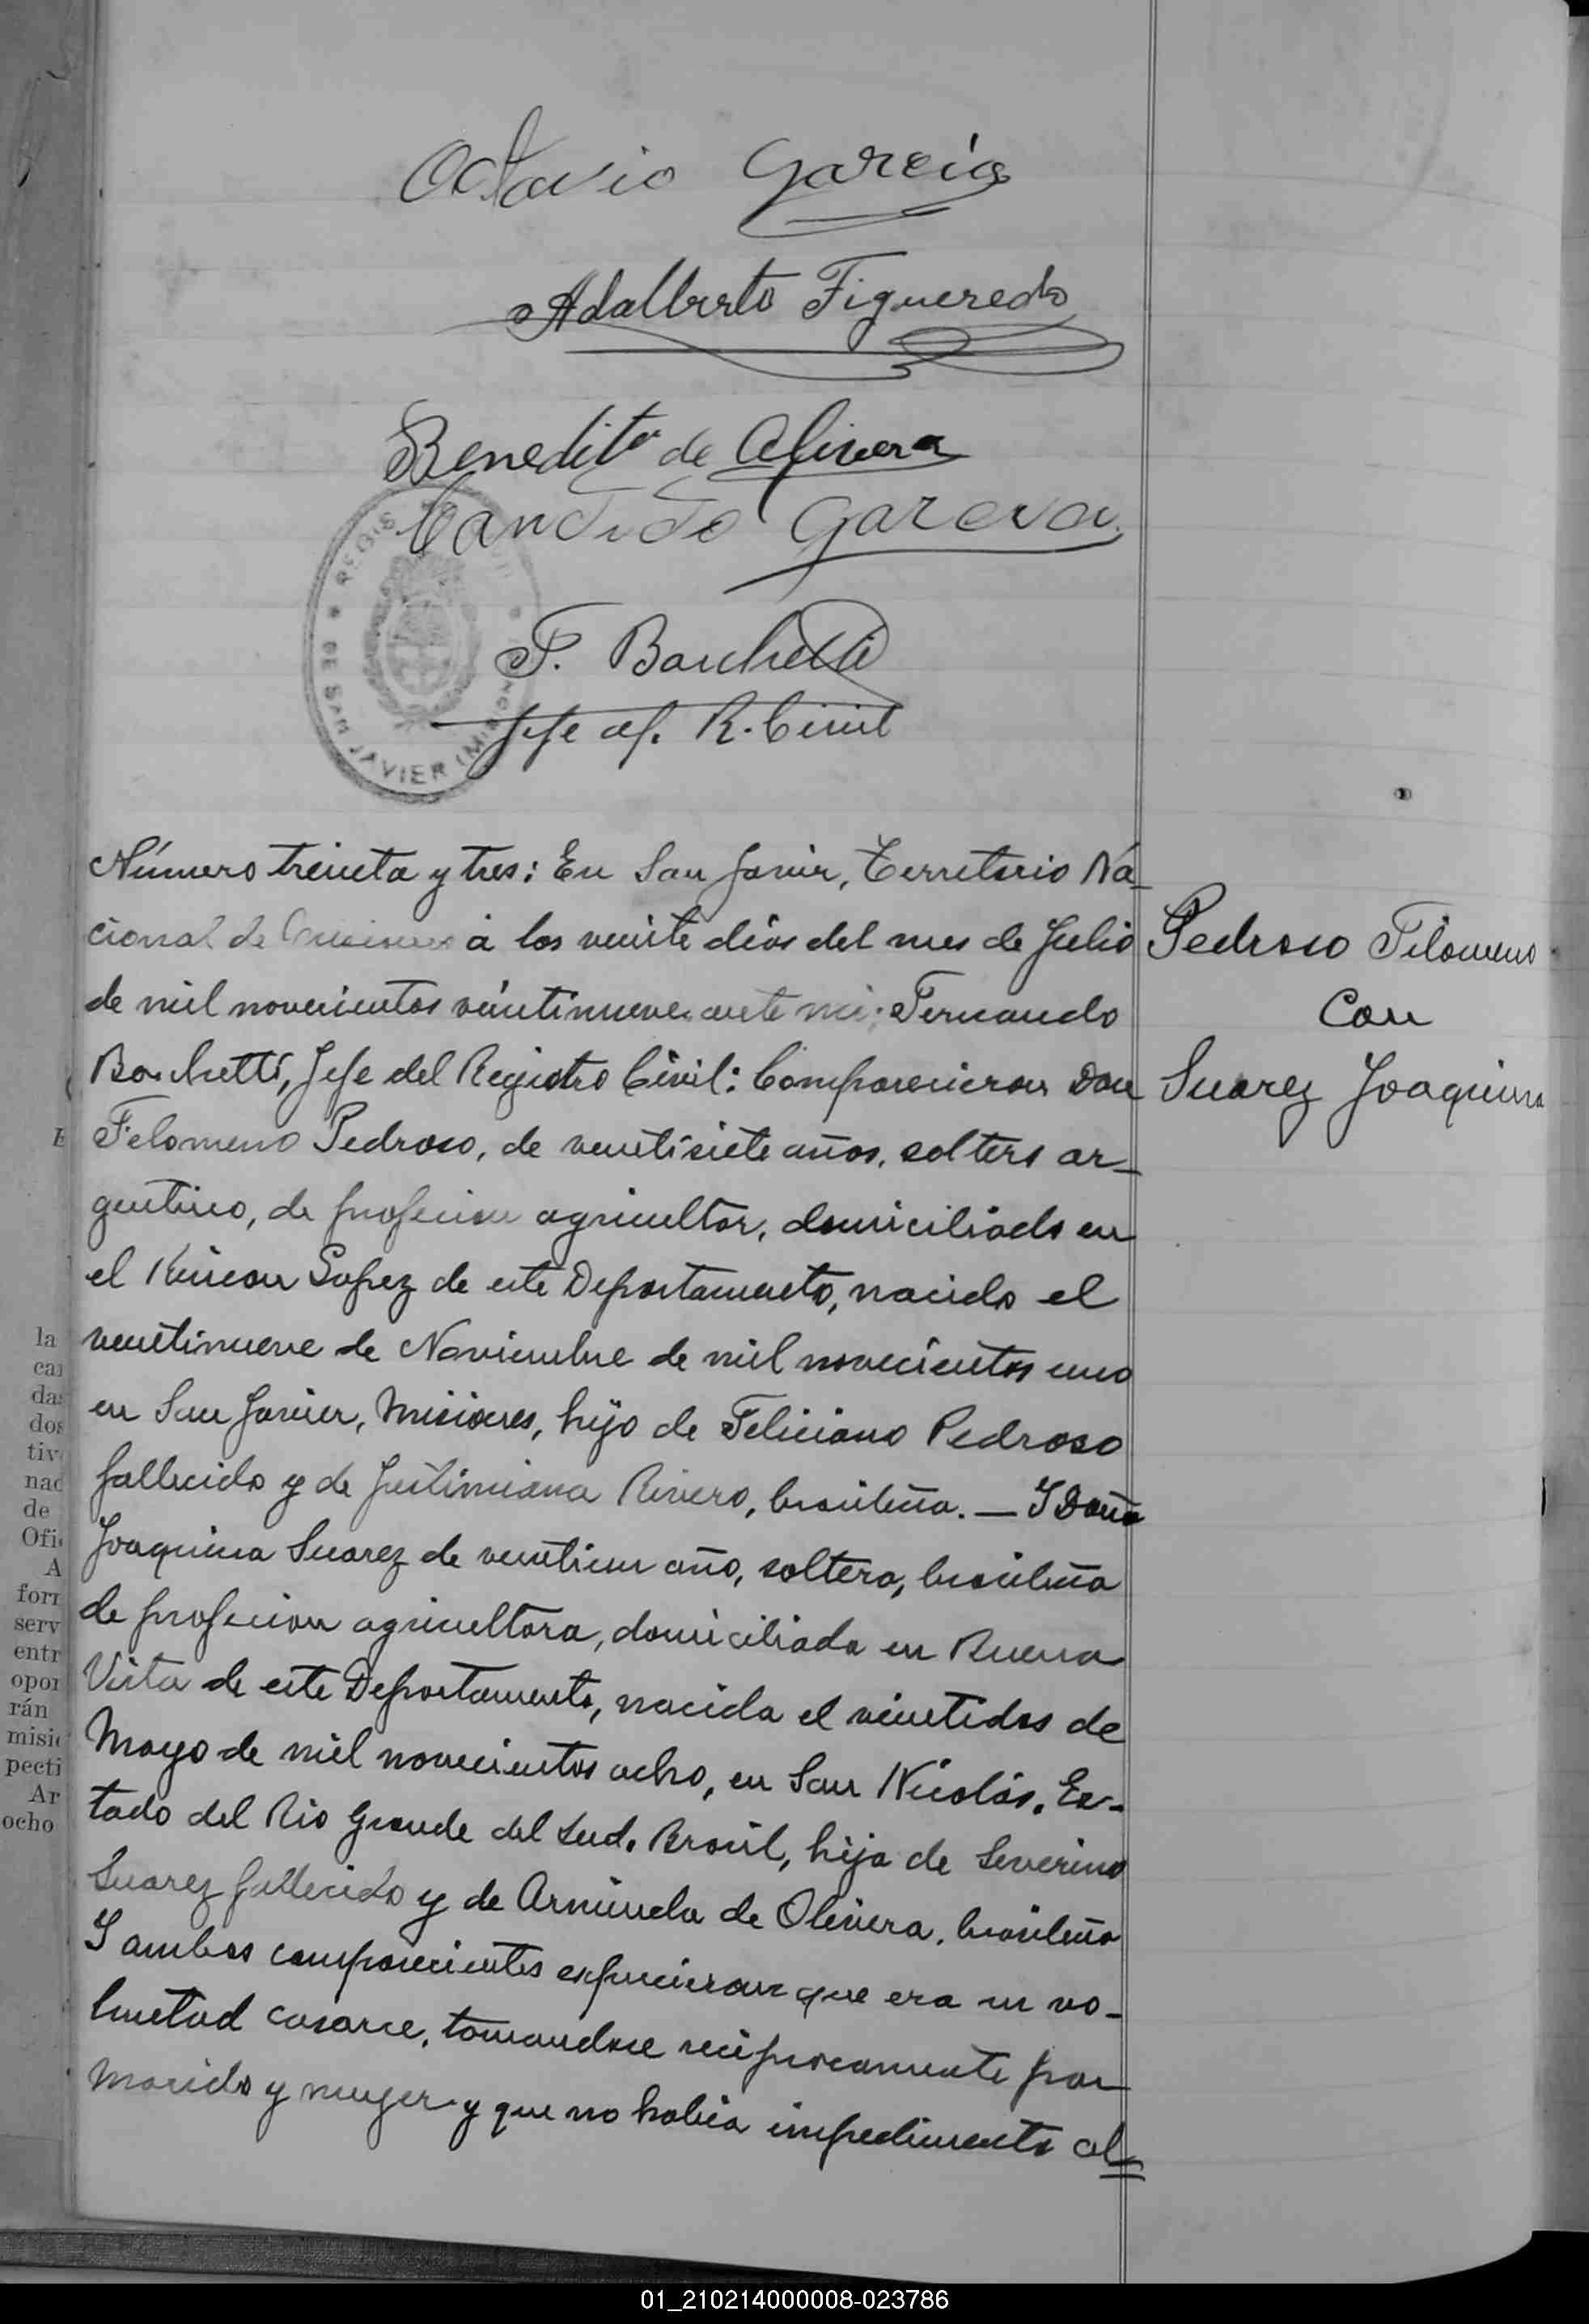 Octavio Garcia
Adalberto Figueredo
Benedito de Olivera
Candido Gareva
REGIS
DE SAN JAVIER (MISION
F. Borchetti
Jefe of. R. Civil
Número treinta y tres: En San Javier, Territorio Na-
cional de Misiones a los veinte dias del mes de Julio
de mil novecientos veintinueve ante mi: Fernando
Borchetti, Jefe del Registro Civil: Comparecieron Don
Filomeno Pedroso, de veintisiete años, soltero ar-
gentino, de profecion agricultor, domiciliado en
el Rincon Lopez de este Departamento, nacido el
veintinueve de Noviembre de mil novecientos uno
en San Javier, Misiones, hijo de Feliciano Pedroso
fallecido y de Justiniana Rivero, brasileña. — Y Doña
Joaquina Suarez de veintiun año, soltera, brasileña
de profecion agricultora, domiciliada en Buena
Vista de este Departamento, nacida el veintidos de
Mayo de mil novecientos ocho, en San Nicolás, Es-
tado del Rio Grande del Sud. Brasil, hija de Severino
Suarez fallecido y de de Olivera, brasileña
Y ambos comparecientes expucieron que era su vo-
luntad casarce, tomandose reciprocamente por
marido y mujer y que no habia impedimento al
Pedroso Filomeno
Con
Suarez Joaquina
la
car
das
dos
tiv
nac
de
Ofi
A
forr
serv
entr
opor
rán
misi
pecti
Ar
ocho
01_210214000008-023786